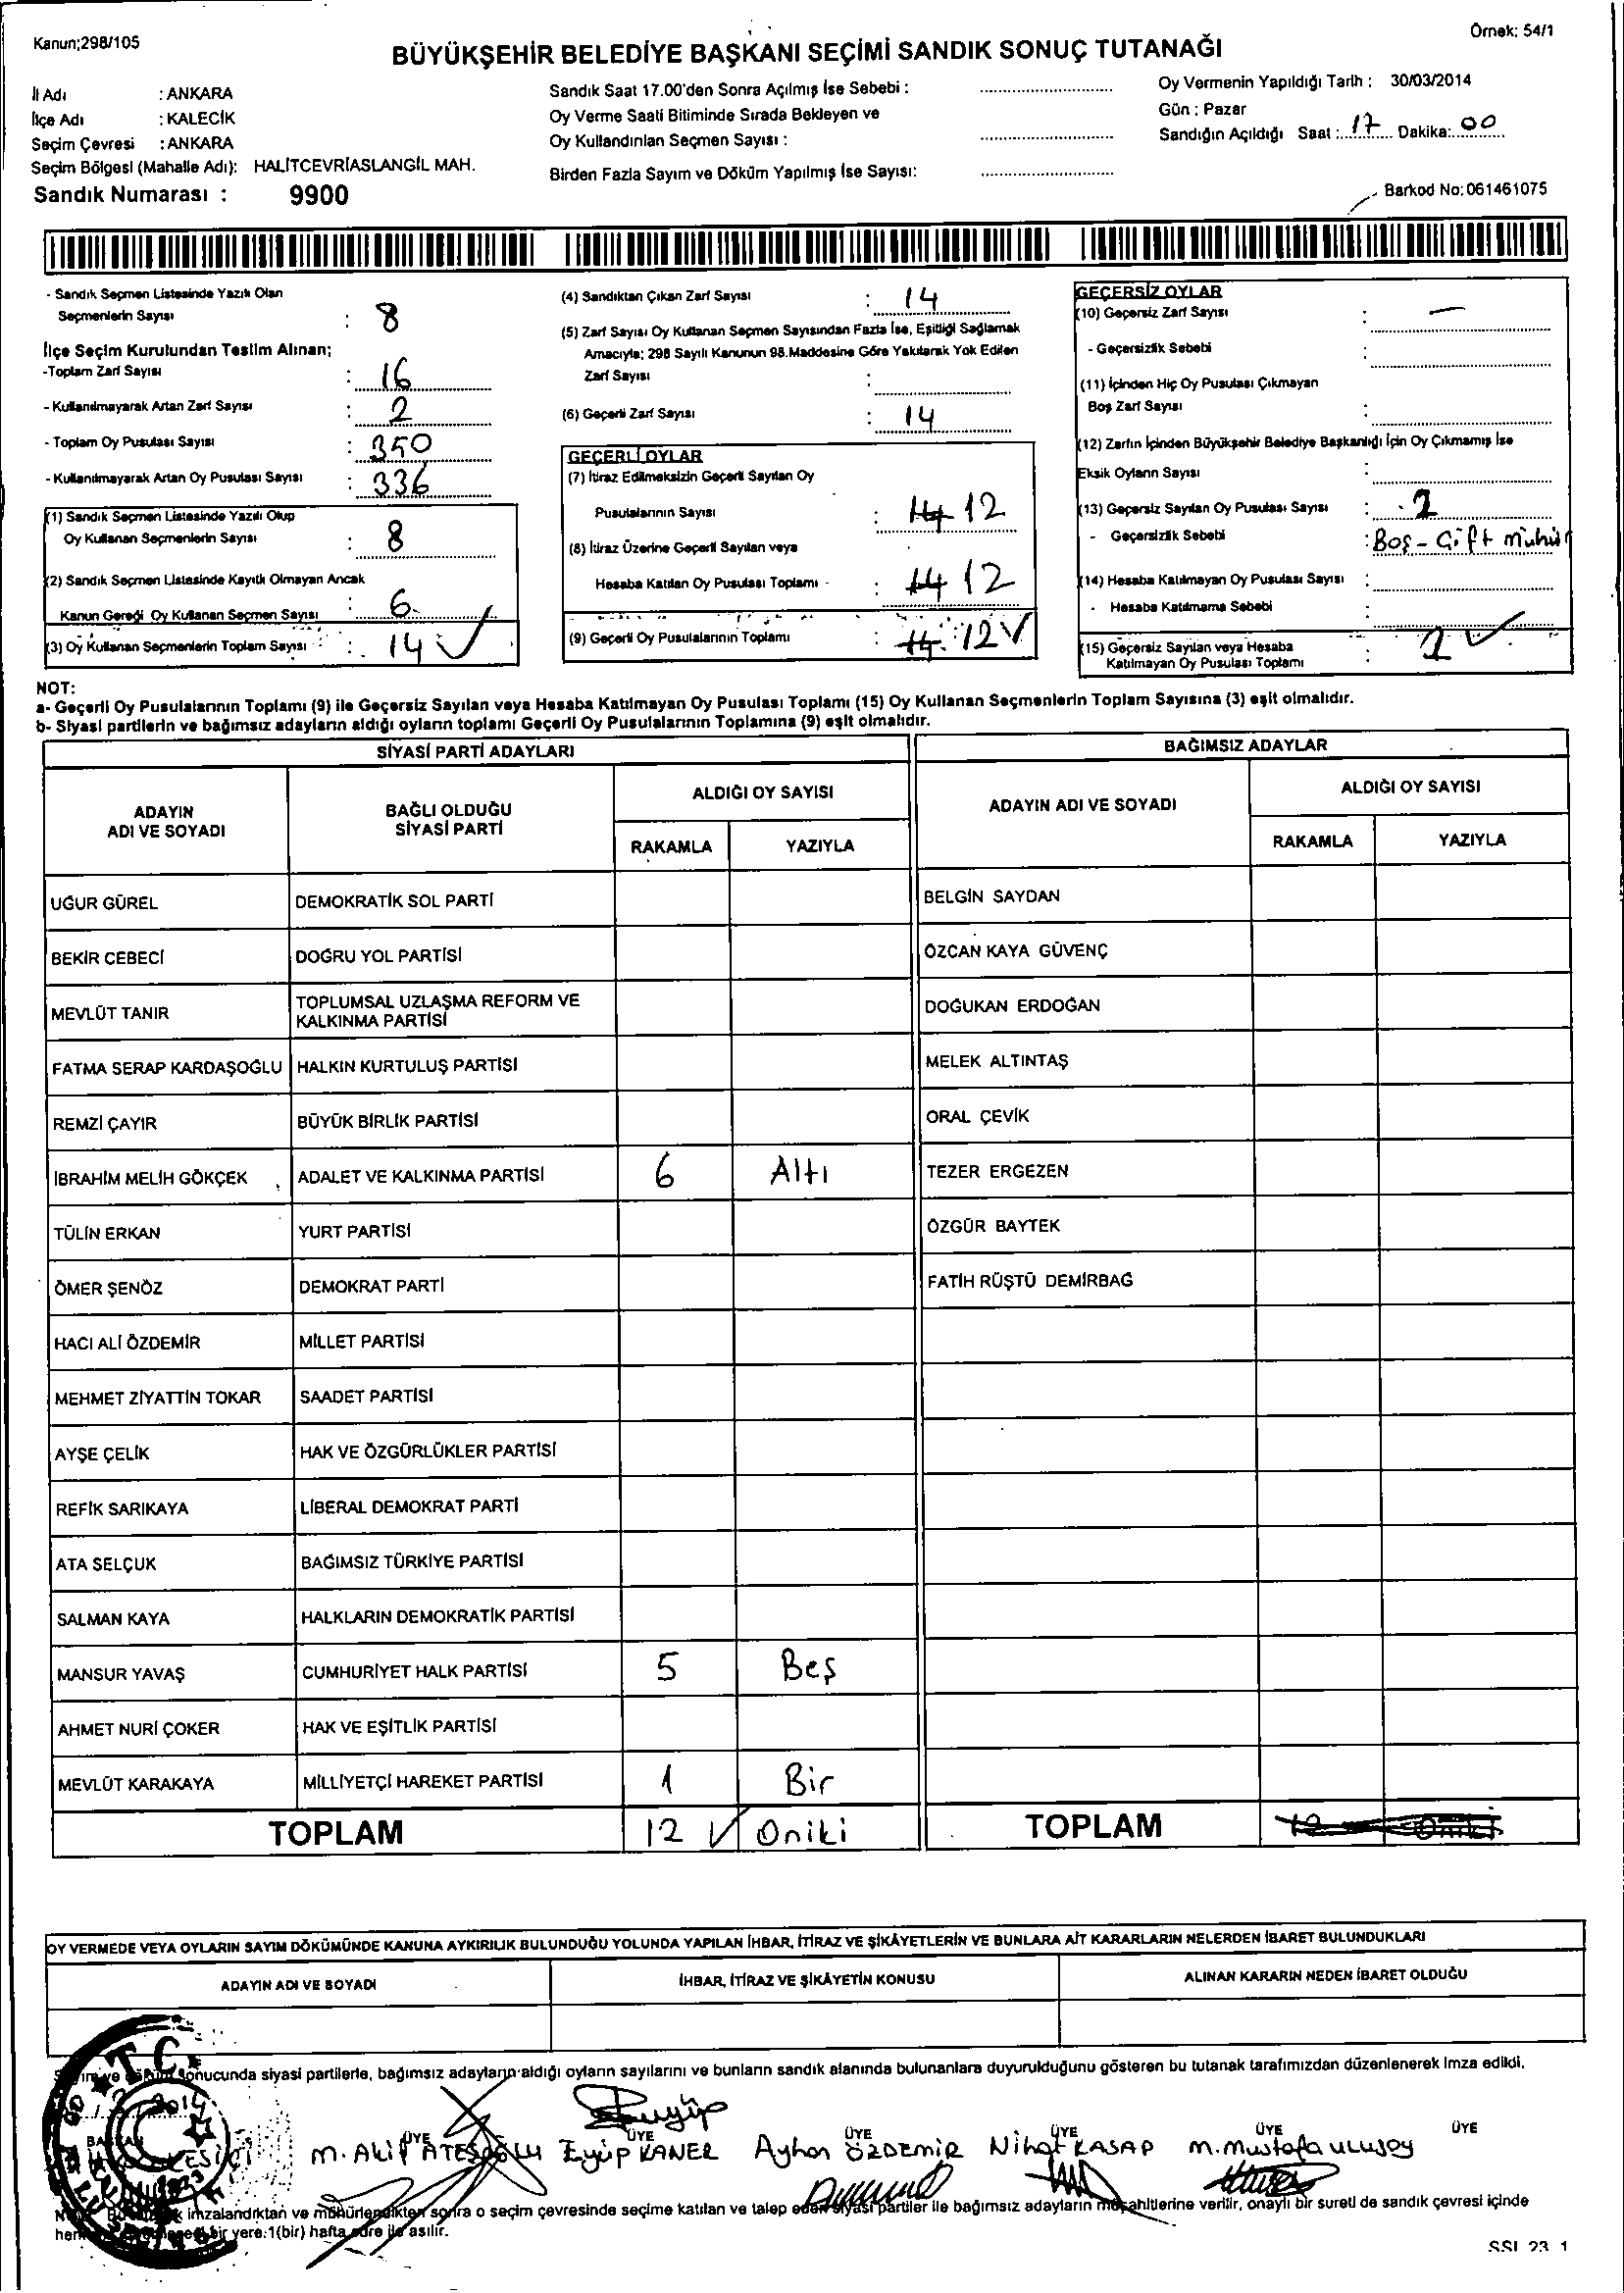 Kanun;298/105
Örnek: 54/1
BÜYÜKŞEHİR BELEDİYE BAŞKANI SEÇİMİ SANDIK SONUÇ TUTANAĞI
İl Adı : ANKARA
İlçe Adı : KALECİK
Seçim Çevresi : ANKARA
Seçim Bölgesi (Mahalle Adı): HALİTCEVRİASLANGİL MAH.
Sandık Numarası : 9900
Sandık Saat 17.00'den Sonra Açılmış İse Sebebi :
Oy Verme Saati Bitiminde Sırada Bekleyen ve
Oy Kullandırılan Seçmen Sayısı :
Birden Fazla Sayım ve Döküm Yapılmış İse Sayısı:
Oy Vermenin Yapıldığı Tarih : 30/03/2014
Gün : Pazar
Sandığın Açıldığı Saat : 17 Dakika: 00
Barkod No: 061461075
- Sandık Seçmen Listesinde Yazılı Olan
Seçmenlerin Sayısı : 8
İlçe Seçim Kurulundan Teslim Alınan;
-Toplam Zarf Sayısı : 16
- Kullanılmayarak Artan Zarf Sayısı : 2
- Toplam Oy Pusulası Sayısı : 350
- Kullanılmayarak Artan Oy Pusulası Sayısı : 336
(1) Sandık Seçmen Listesinde Yazılı Olup
Oy Kullanan Seçmenlerin Sayısı : 8
(2) Sandık Seçmen Listesinde Kayıtlı Olmayan Ancak
Kanun Gereği Oy Kullanan Seçmen Sayısı : 6
(3) Oy Kullanan Seçmenlerin Toplam Sayısı : 14
(4) Sandıktan Çıkan Zarf Sayısı : 14
(5) Zarf Sayısı Oy Kullanan Seçmen Sayısından Fazla İse, Eşitliği Sağlamak
Amacıyla; 298 Sayılı Kanunun 98.Maddesine Göre Yakılarak Yok Edilen
Zarf Sayısı :
(6) Geçerli Zarf Sayısı : 14
GEÇERLİ OYLAR
(7) İtiraz Edilmeksizin Geçerli Sayılan Oy
Pusulalarının Sayısı : 14 12
(8) İtiraz Üzerine Geçerli Sayılan veya
Hesaba Katılan Oy Pusulası Toplamı - : 14 12
(9) Geçerli Oy Pusulalarının Toplamı : 14 12
GEÇERSİZ OYLAR
(10) Geçersiz Zarf Sayısı : —
- Geçersizlik Sebebi :
(11) İçinden Hiç Oy Pusulası Çıkmayan
Boş Zarf Sayısı :
(12) Zarfın İçinden Büyükşehir Belediye Başkanlığı İçin Oy Çıkmamış İse
Eksik Oyların Sayısı :
(13) Geçersiz Sayılan Oy Pusulası Sayısı : 2
- Geçersizlik Sebebi : Boş - Çift mühür
(14) Hesaba Katılmayan Oy Pusulası Sayısı :
- Hesaba Katılmama Sebebi :
(15) Geçersiz Sayılan veya Hesaba
Katılmayan Oy Pusulası Toplamı : 2
NOT:
a- Geçerli Oy Pusulalarının Toplamı (9) ile Geçersiz Sayılan veya Hesaba Katılmayan Oy Pusulası Toplamı (15) Oy Kullanan Seçmenlerin Toplam Sayısına (3) eşit olmalıdır.
b- Siyasi partilerin ve bağımsız adayların aldığı oyların toplamı Geçerli Oy Pusulalarının Toplamına (9) eşit olmalıdır.
SİYASİ PARTİ ADAYLARI
BAĞIMSIZ ADAYLAR
ADAYIN
ADI VE SOYADI
BAĞLI OLDUĞU
SİYASİ PARTİ
ALDIĞI OY SAYISI
RAKAMLA YAZIYLA
ADAYIN ADI VE SOYADI
ALDIĞI OY SAYISI
RAKAMLA YAZIYLA
UĞUR GÜREL DEMOKRATİK SOL PARTİ BELGİN SAYDAN
BEKİR CEBECİ DOĞRU YOL PARTİSİ ÖZCAN KAYA GÜVENÇ
MEVLÜT TANIR TOPLUMSAL UZLAŞMA REFORM VE
KALKINMA PARTİSİ DOĞUKAN ERDOĞAN
FATMA SERAP KARDAŞOĞLU HALKIN KURTULUŞ PARTİSİ MELEK ALTINTAŞ
REMZİ ÇAYIR BÜYÜK BİRLİK PARTİSİ ORAL ÇEVİK
İBRAHİM MELİH GÖKÇEK ADALET VE KALKINMA PARTİSİ 6 Altı TEZER ERGEZEN
TÜLİN ERKAN YURT PARTİSİ ÖZGÜR BAYTEK
ÖMER ŞENÖZ DEMOKRAT PARTİ FATİH RÜŞTÜ DEMİRBAĞ
HACI ALİ ÖZDEMİR MİLLET PARTİSİ
MEHMET ZİYATTİN TOKAR SAADET PARTİSİ
AYŞE ÇELİK HAK VE ÖZGÜRLÜKLER PARTİSİ
REFİK SARIKAYA LİBERAL DEMOKRAT PARTİ
ATA SELÇUK BAĞIMSIZ TÜRKİYE PARTİSİ
SALMAN KAYA HALKLARIN DEMOKRATİK PARTİSİ
MANSUR YAVAŞ CUMHURİYET HALK PARTİSİ 5 Beş
AHMET NURİ ÇOKER HAK VE EŞİTLİK PARTİSİ
MEVLÜT KARAKAYA MİLLİYETÇİ HAREKET PARTİSİ 1 Bir
TOPLAM 12 Oniki TOPLAM 12 Oniki
OY VERMEDE VEYA OYLARIN SAYIM DÖKÜMÜNDE KANUNA AYKIRILIK BULUNDUĞU YOLUNDA YAPILAN İHBAR, İTİRAZ VE ŞİKÂYETLERİN VE BUNLARA AİT KARARLARIN NELERDEN İBARET BULUNDUKLARI
ADAYIN ADI VE SOYADI İHBAR, İTİRAZ VE ŞİKÂYETİN KONUSU ALINAN KARARIN NEDEN İBARET OLDUĞU
T.C.
sonucunda siyasi partilerle, bağımsız adayların aldığı oyların sayılarını ve bunların sandık alanında bulunanlara duyurulduğunu gösteren bu tutanak tarafımızdan düzenlenerek imza edildi.
BAŞKAN ÜYE ÜYE ÜYE ÜYE ÜYE ÜYE
M. Akif ATEŞOĞLU Eyüp KANER Ayhan ÖZDEMİR Nihat KASAP M. Mustafa ULUSOY
imzalandıktan ve mühürlendikten sonra o seçim çevresinde seçime katılan ve talep eden siyasi partiler ile bağımsız adayların müşahitlerine verilir, onaylı bir sureti de sandık çevresi içinde
bir yere 1(bir) hafta süre ile asılır.
SSI 23 1